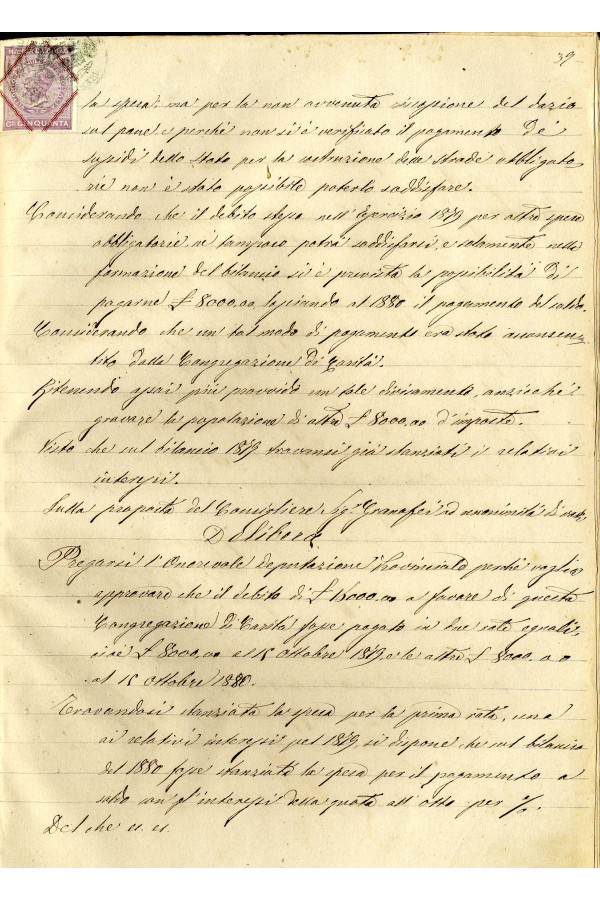 39
CINQUANTA
la spesa; ma per la non avvenuta riscossione del dazio
sul pane, e perchè non si è verificato il pagamento de'
sussidi dello Stato per la costruzione delle strade obbligato-
rie non è stato possibile poterlo soddisfare.
Considerando che il debito stesso nell'Esercizio 1879 per altre spese
obbligatorie, nè tampoco potrà soddisfarsi, e solamente nella
formazione del bilancio si è prevista la possibilità di
pagarne £ 8000,00, lasciando al 1880 il pagamento del saldo.
Considerando che un tal modo di pagamento era stato acconsen-
tito dalla Congregazione di Carità.
Ritenendo assai più provvido un tale divisamento, anzicchè
gravare la popolazione di altre £ 8000,00 d'imposte.
Visto che sul bilancio 1879 trovansi già stanziati i relativi
interessi.
Sulla proposta del Consigliere Sigr Granafei ad unanimità di voti,
Delibera
Pregarsi l'Onorevole Deputazione Provinciale perchè voglia
approvare che il debito di £ 16000,00 a favore di questa
Congregazione di Carità fosse pagato in due rate eguali,
cioè £ 8000,00 al 15 Ottobre 1879, e le altre £ 8000,00
al 15 Ottobre 1880.
Trovandosi stanziata la spesa per la prima rata, una
ai relativi interessi pel 1879, si dispone che sul bilancio
del 1880 fosse stanziata la spesa per il pagamento a
saldo con gl'interessi della quota all'otto per %.
Del che es. es.